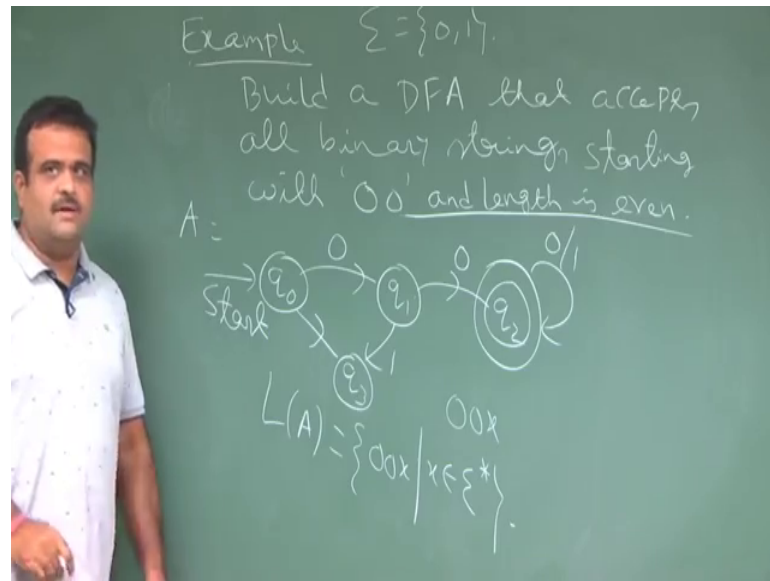 Example Σ = {0,1}.
Build a DFA that accepts
all binary strings starting
with '00' and length is even.
A:
Start q0 0 q1 0 q2 0/1
1
q3
L(A) = {00x | x ∈ Σ*}.
00x